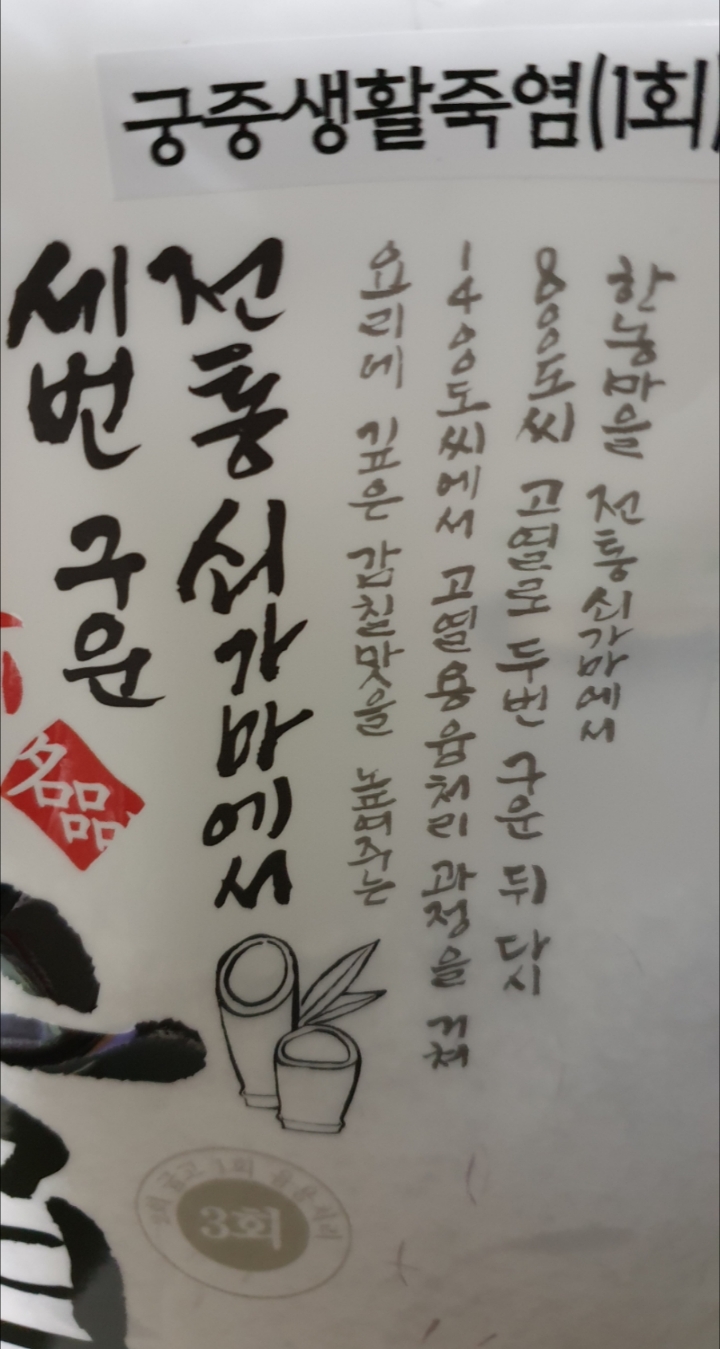 궁중생활죽염(1회)
한농마을 전통 쇠가마에서
800도씨 고열로 두번 구운 뒤 다시
1400도씨에서 고열 용융처리 과정을 거쳐
요리에 깊은 감칠맛을 높여주는
전통 쇠가마에서
세번 구운
名品
2회 굽고 1회 용융처리
3회